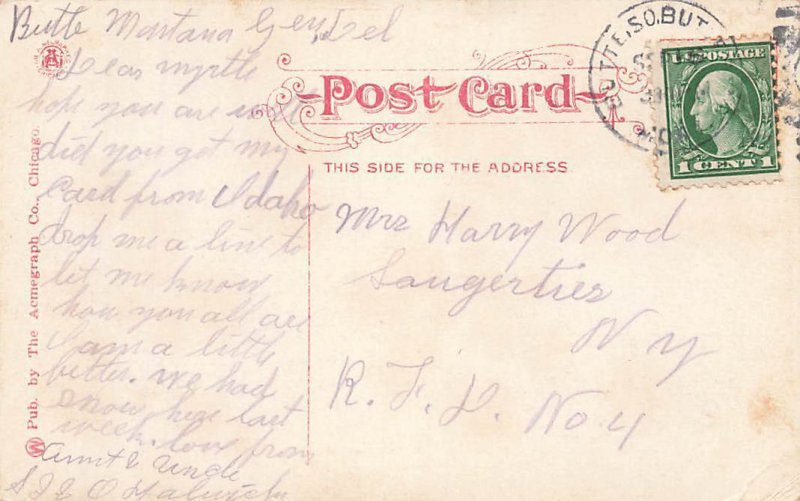 Butte Montana Gen Del
Dear Myrtle
hope you are well
did you get my
Card from Idaho
drop me a line to
let me know
how you all are
I am a little
better. we had
snow here last
week. love from
Aunt & Uncle
S J & O
Pub. by The Acmegraph Co., Chicago.
Post Card
THIS SIDE FOR THE ADDRESS
BUTTE, SO. BUT
U.S. POSTAGE
1 CENT 1
Mrs Harry Wood
Saugerties
N Y
R. F. D. No. 4